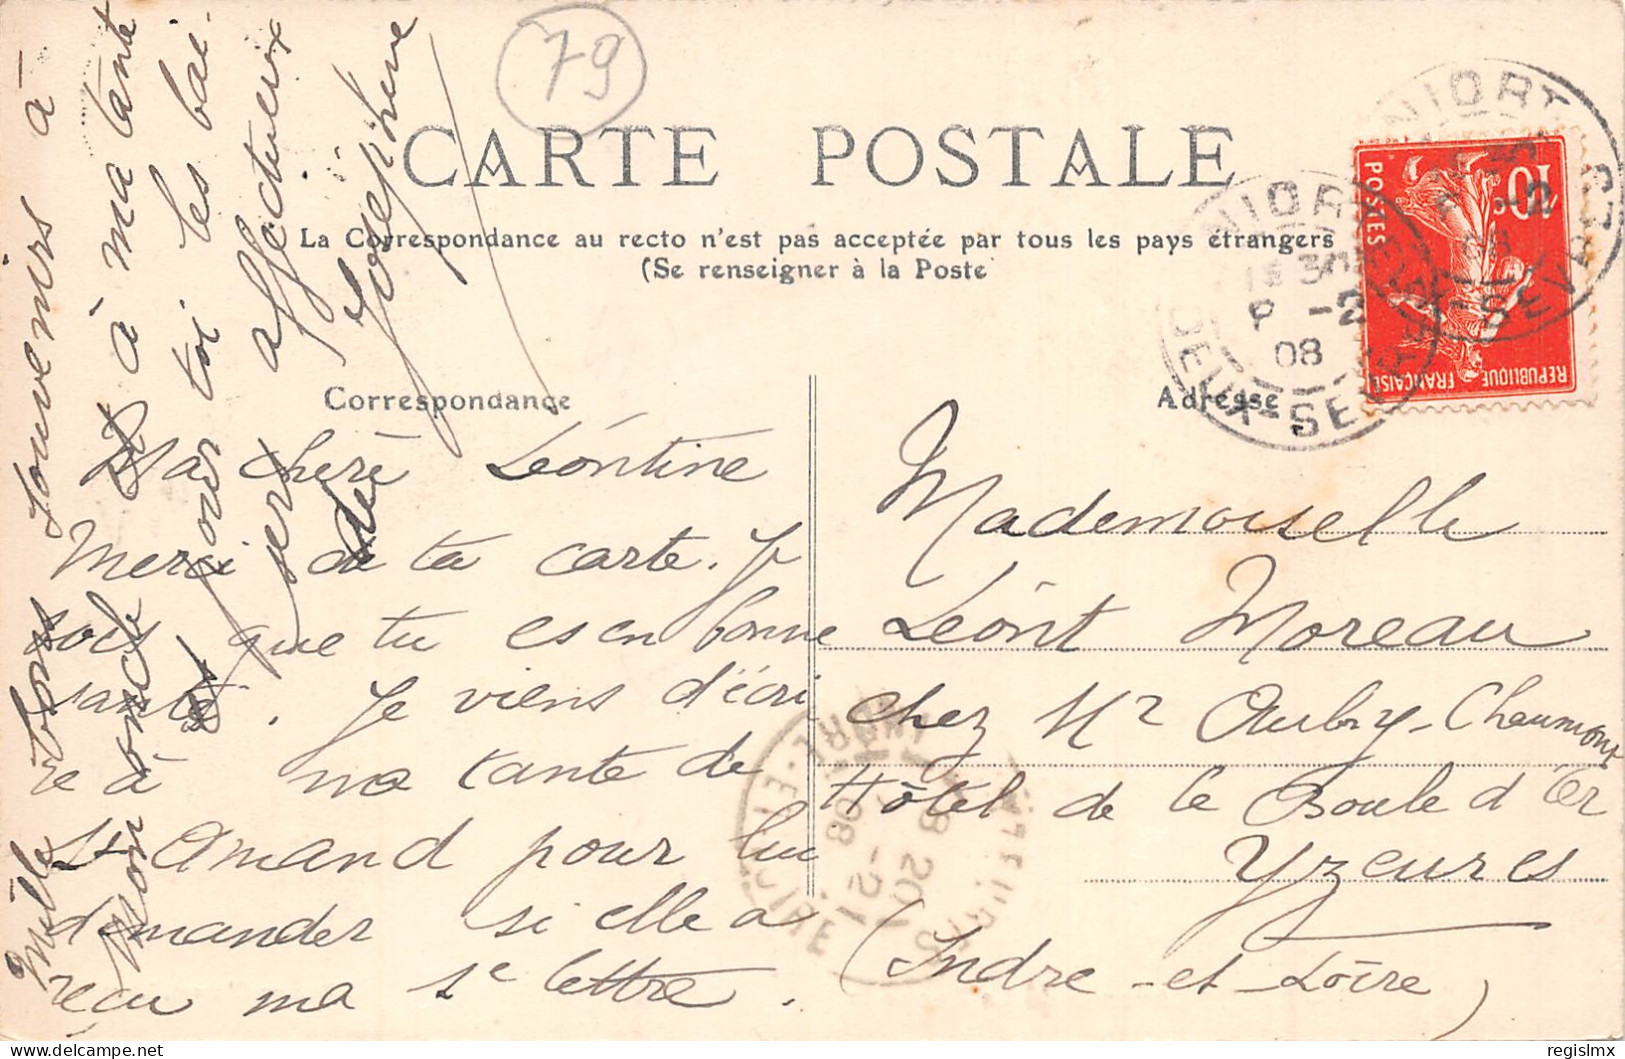 79
CARTE POSTALE
La Correspondance au recto n'est pas acceptée par tous les pays étrangers
(Se renseigner à la Poste
Correspondance
Ma chère Léontine
Merci de ta carte. Je
vois que tu es en bonne
santé. Je viens d'écri
re à ma tante de
St Amand pour lui
demander si elle a
reçu ma 1e lettre.
Mille bons souvenirs à
mon oncle & à ma tante
et pour toi les bai
sers affectueux
de Joséphine
Adresse
Mademoiselle
Léont Moreau
chez Mr Aubry-Chaumont
Hôtel de la Boule d'Or
Yzeures
(Indre-et-Loire)
NIORT
15 30
2
08
DEUX-SEVRES
NIORT
DEUX-SEVRES
10c
POSTES
REPUBLIQUE FRANÇAISE
8 20
-2
08
INDRE-ET-LOIRE
regislmx